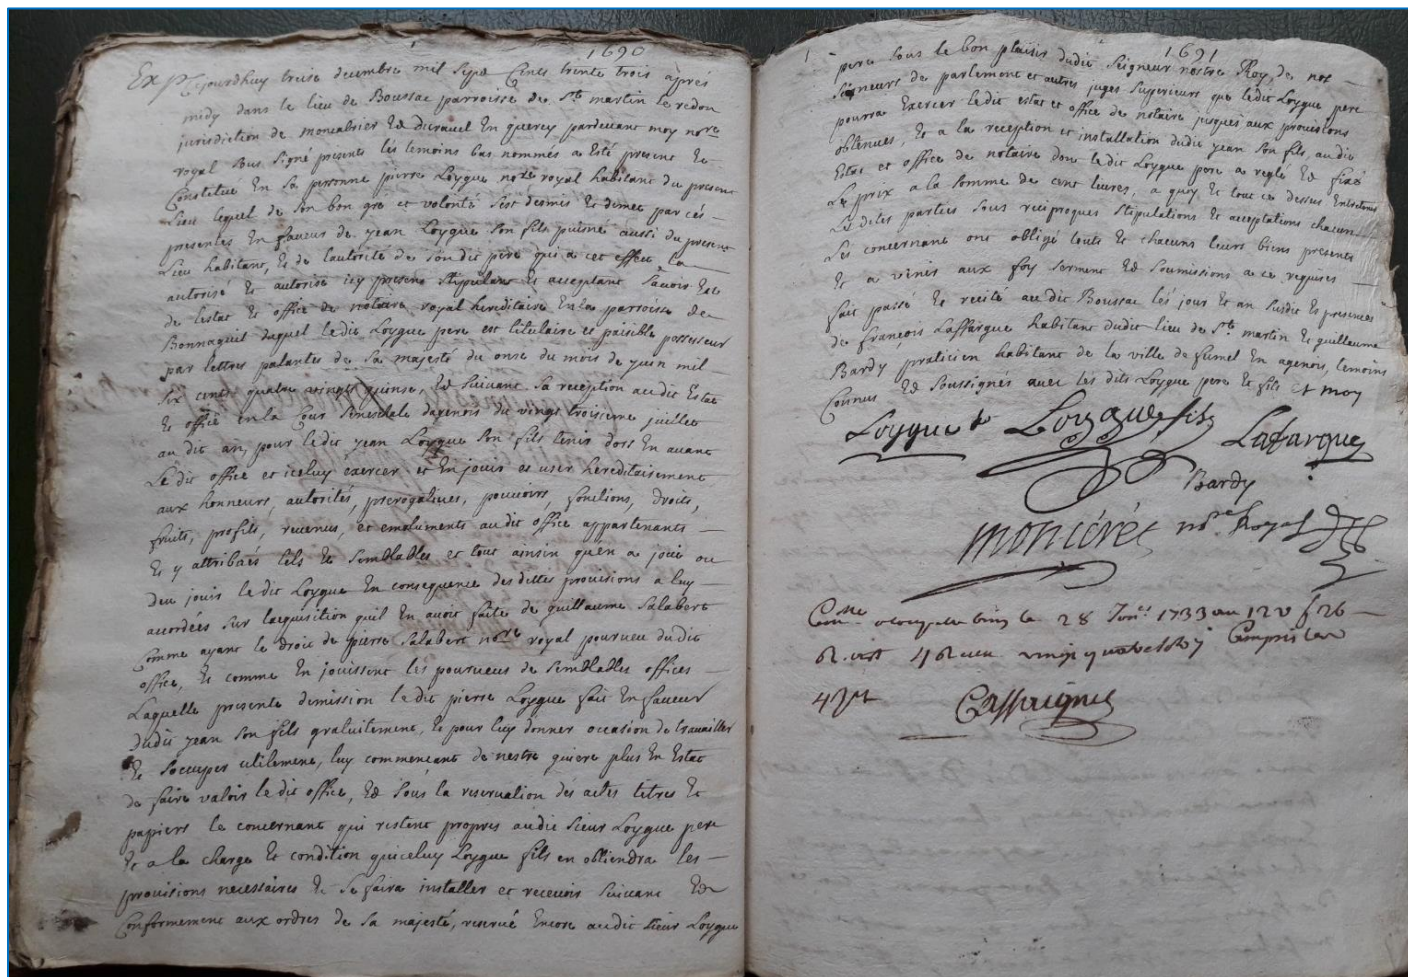 1690
Exp. Cejourdhuy treise decembre mil sept cens trente trois apres
midy dans le lieu de Boussac parroisse de St. martin le redon
jurisdiction de moncabrier Ed diuravel En quercy pardevant moy nore.
royal sous signé presents les temoins bas nommés a Esté present Et
Constitué En sa personne pierre Loygue nore. royal habitant du present
Lieu lequel de son bon gré et volonté sest desmis Et dimet par cés
presentes En faveur de yean Loygue son fils puisné aussi du present
Lieu habitant, Et de lautorité de son dit pere qui a cet effect la
autorisé Et autorise icy present stipulant Et acceptant Savoir Est
de lestat Et office de notaire royal hereditaire En la parroisse de
Bonnaguil duquel le dit Loygue pere est titulaire et paisible possesseur
par lettres patantes de sa majesté du onse du mois de yuin mil
six cents quatre vingts quinse, Ed suivant sa reception audit Estat
Et office en la Cour senechale dagenois du vingt troisieme juillet
au dit an, pour le dit yean Loygue son fils tenir dors En avant
Le dit office et iceluy éxercer, et En jouir et user hereditairement
aux honneurs, autorités, prerogatives, pouvoirs, fonctions, droits,
fruits, profits, revenus, et emoluments au dit office appartenants
Et y attribués tels Et semblables et tout ainsin quen a joüi ou
deu jouir le dit Loygue En consequence des dittes provisions a luy
accordées sur lacquisition quil En avoit faite de guillaume Salabert
Comme ayant le droit de pierre Salabert nore. royal pourveu dudit
office, Et comme En jouissent les pourveus de semblables offices
Laquelle presente demission le dit pierre Loygue fait En faveur
dudit yean son fils gratuitement, Et pour luy donner occasion de travailler
Et soccuper utilement, luy commencant de nestre guiere plus En Estat
de faire valoir le dit office, Ed sous la reservation dés actes titres Et
papiers le concernant qui restent propres audit sieur Loygue pere
Et a la charge Et condition quiceluy Loygue fils en obtiendra les
provisions necessaires Et se faira installer et recevoir suivant Ed
Conformement aux ordres de sa majesté, reservé Encore audit sieur Loygue
1691
pere sous le bon plaisir dudit Seigneur nostre Roy, de nos
seigneurs de parlement et autres juges superieurs que ledit Loygue pere
pourra Exercer le dit estat et office de notaire jusques aux provisions
obtenues, Et a la reception et installation dudit yean son fils, au dit
Estat et office de notaire dont le dit Loygue pere a reglé Ed fixé
Le prix a la somme de cent livres, a quoy Et tout ce dessus Entretenir
Les dites parties sous reciproques stipulations Et acceptations chacun
Les concernant ont obligé touts Et chacuns leurs biens presents
Et a venir aux foy serment Ed soumissions a ce requises
fait passé Et recité au dit Boussac lés jour et an susdit Es presences
de francois Laffargue habitant dudit lieu de St. martin Et guillaume
Bardy praticien habitant de la ville de fumel En agenois, temoins
Connus Ed soussignés avec les dits Loygue pere Et fils et moy
Loygue Loygue fils Lafargue
Bardy
monceret nore. Royal
28 1733 120 f 26
Compris